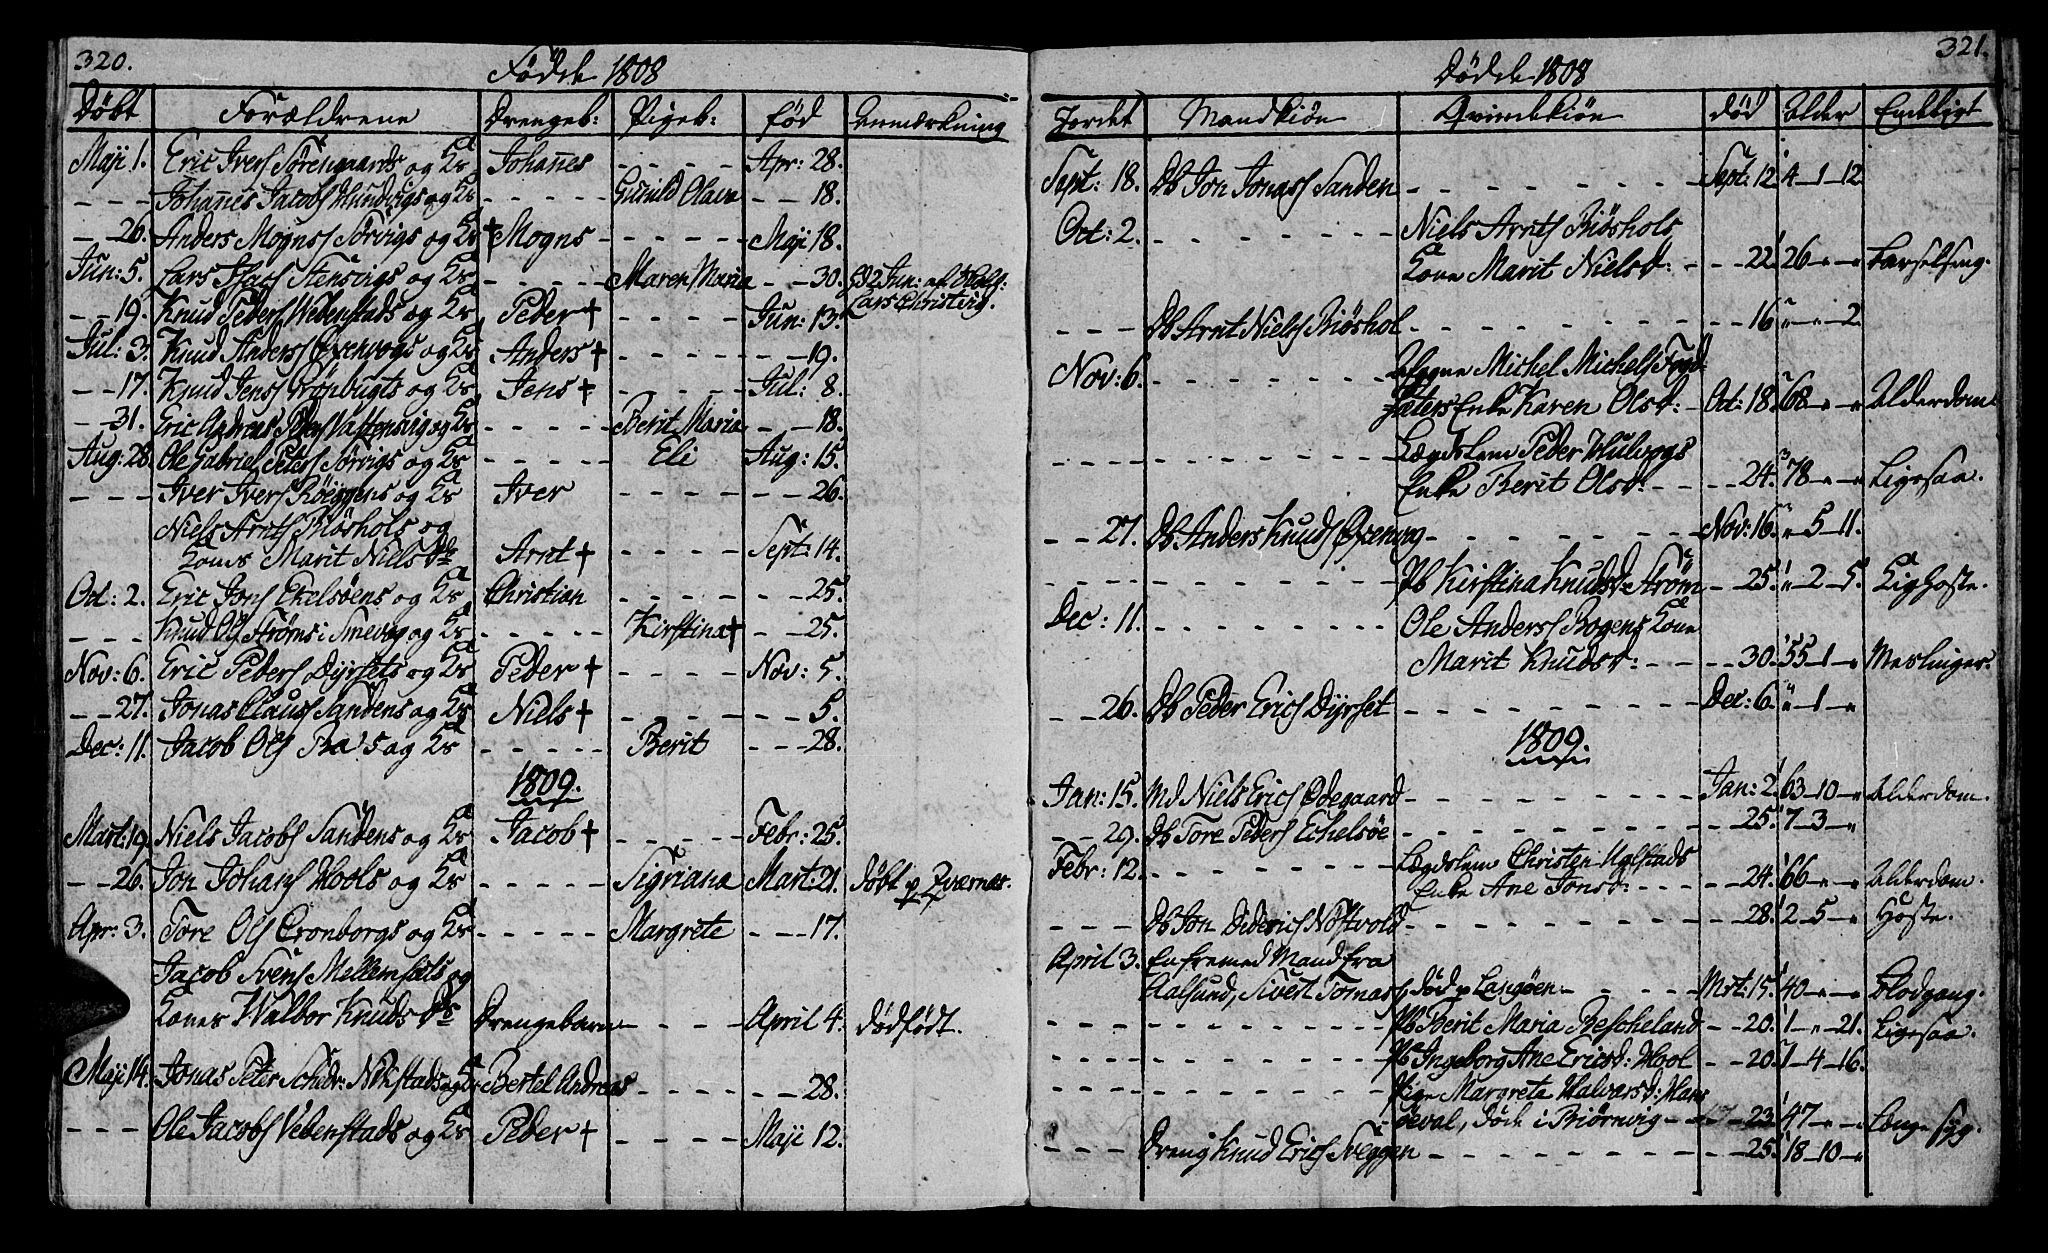 320.
Fødde 1808
Døbt Forældrene Drengeb: Pigeb: fød Anmærkning
Maji 1. Eric Ivers Torengaards og Ks Johannes - - - - Apr: 28.
- - - Johannes Jacobs Hundvigs og Ks - - - - - Gunild Olava - - 18.
- - 26. Anders Mogns Sørvigs og Ks + Mogns - - - - - Maji 18.
Jun: 5. Lars Isacs Stensvigs og Ks - - - - - Maren Maria - - 30. 2 Jun: af
Lars Christvig.
- - 19. Knud Peders Vebenstads og Ks Peder + - - - - - Jun: 13.
Jul: 3. Knud Anders Oxenvogs og Ks Anders + - - - - - - - 19.
- - 17. Knud Jens Grønbugts og Ks Jens + - - - - - Jul: 8.
- - 31. Eric Andreas Vattenvig og Ks - - - - - Berit Maria - - - 18.
Aug: 28. Ole Gabriel Peters Sørvigs og Ks - - - - - Eli Aug: 15.
- - - Iver Ivers Røeggens og Ks Iver - - - - - - - 26.
Niels Arnts Biøshols og
Kones Marit Niels Dr Arnt + - - - - Sept: 14.
Oct: 2. Eric Jons Ekelsøens og Ks Christian - - - - - - - 25.
- - - Knud Ols Strøms i Smevog og Ks - - - - - Kirstina + - - 25.
Nov: 6. Eric Peders Dyrsets og Ks Peder + - - - - Nov: 5.
- - 27. Jonas Claus Sandens og Ks Niels + - - - - - - 5.
Dec: 11. Jacob Ols og Ks - - - - - Berit - - - 28.
1809.
Mart: 19. Niels Jacobs Sandens og Ks Jacob + - - - - - Febr: 25.
- - 26. Jon Johans Hools og Ks - - - - - Sigriana Mart: 21. døbt p Qværnæs.
Apr: 3. Tore Ols Cronborgs og Ks - - - - - Margrete - - - 17.
Jacob Svens Mellemsæts og
Kones Walbor Knuds Ds Drengebarn - - - - April 4. dødfødt.
Maji 14. Jonas Peter Schedr: Nøkstads og Ks Bertel Andreas - - - - - - - 28.
- - - Ole Jacobs Vebenstads og Ks Peder + - - - - Maji 12.
321.
Dødde 1808
Jordet Mandkiøn Qvindekiøn død Alder Endeligt
Sept: 18. Db Jon Jonas Sanden - - - - - - - - Sept: 12. 4 - 1 - 12
Oct: 2. - - - - - - - Niels Arnts Biøshols
Kone Marit Nielsd: - - - 22. 26 - " - " Barselseng.
- - - Db Arnt Niels Biøshol - - - - - - - - - 16 " - " - 2
Nov: 6. - - - - - - - Afgne Michel Michels
Enke Karen Olsd: - Oct: 18. 68 - " - " Alderdom.
- - - - - - - - - - - Lægdslem Peder Hulvogs
Enke Berit Olsd: - - - - 24. 78 - " - " Ligesaa.
- - 27. Db Anders Knuds Oxenvog - - - - - - - Nov: 16. " 5 - 11.
- - - - - - - - - - - Pb Kirstina Knudsd: Strøm - - 25. " - 2 - 5. Kighoste.
Dec: 11. - - - - - - - Ole Anders Bogens Kone
Marit Knudsd: - - - - 30. 55 - 1 - " Meslinger.
- - 26. Db Peder Erics Dyrset - - - - - - - - Dec: 6. " - 1 - "
1809.
Jan: 15. Md Niels Erics Ødegaard - - - - - - - - Jan: 2. 63 - 10 - " Alderdom.
- - 29. Db Tore Peders Eckelsøe - - - - - - - - - 25. 7 - 3 - "
Febr: 12. - - - - - - - Lægdslem Christen Uglstads
Enke Ane Jonsd: - - - - - 24. 66 - " - " Alderdom.
- - - Db Jon Diderics Nøstvold - - - - - - - - 28. 2 - 5 - " Hoste.
April 3. En fremed Mand fra
Aalsund, Sivert Tomas, død p Langøen - - - - - Mrt: 15. 40 - " - " Blodgang.
- - - - - - - - - - - Pb Berit Maria Bescheland - - 20. 1 - " - 21. Ligesaa.
- - - - - - - - - - - Pb Ingeborg Ane Ericsd: Hool - - 20. 7 - 4 - 16.
- - - - - - - - - - - Pige Margrete Halvarsd: Hans
øeval, døde i Biørnvig - - - 23. 47 - " - " Lange syg.
- - - Dreng Knud Erics Sveggen - - - - - - - - 25. 18 - 10 - "